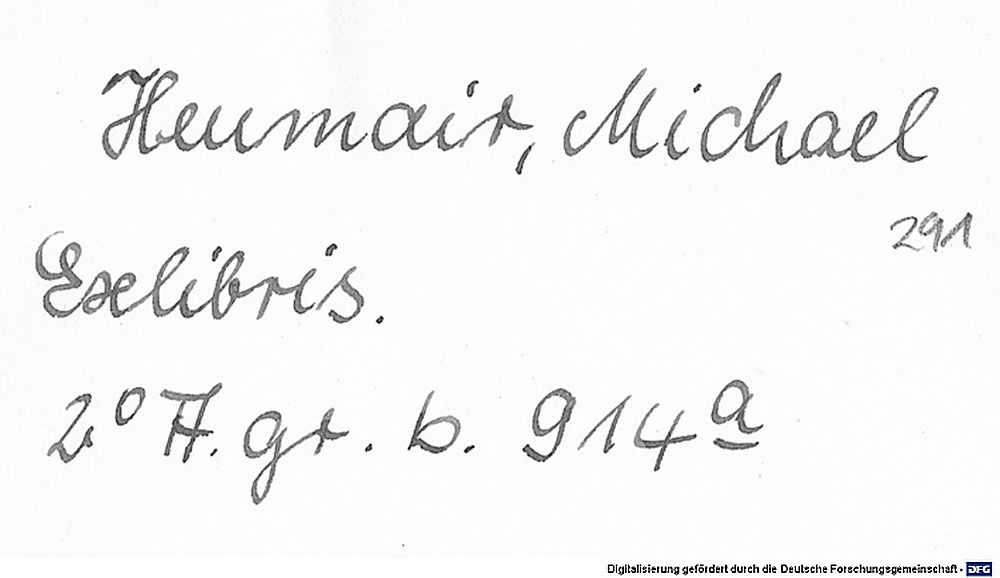 Heumair, Michael
291
Exlibris.
2° A. gr. b. 914ª
Digitalisierung gefördert durch die Deutsche Forschungsgemeinschaft - DFG